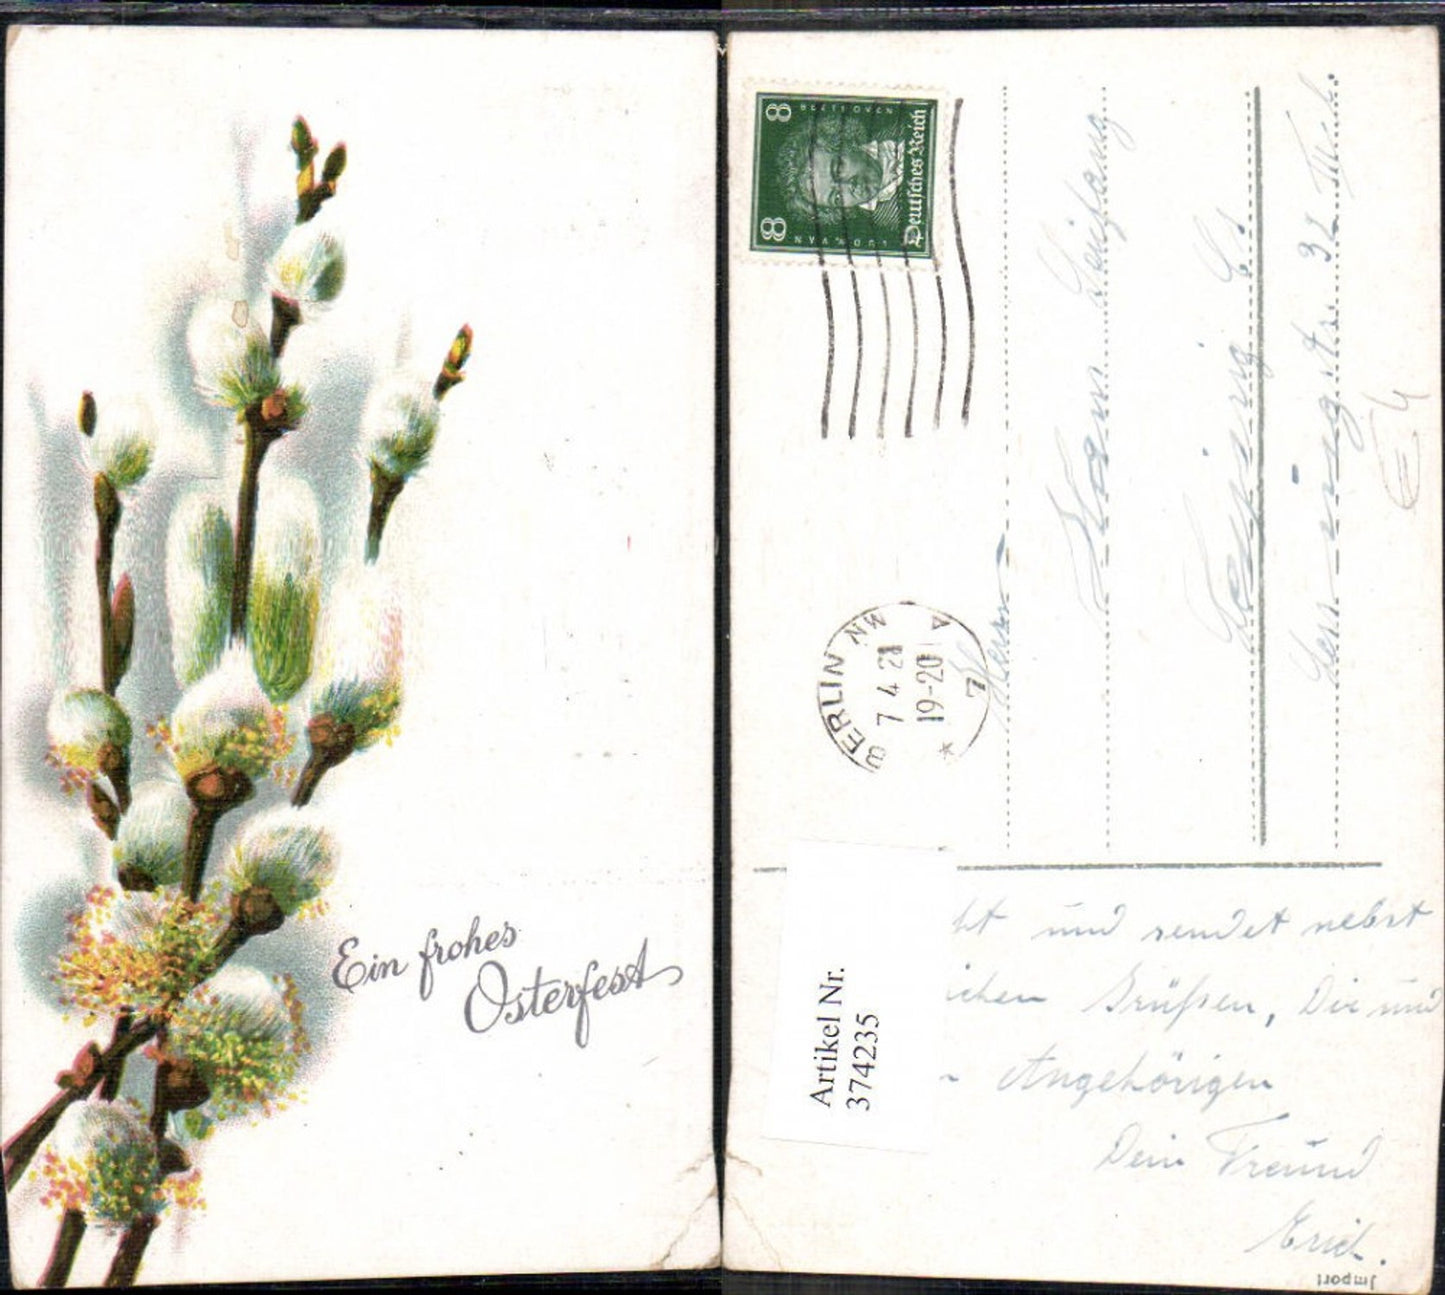 Ein frohes
Osterfest
8 BEETHOVEN
8 LUDW. VAN
Deutsches Reich
BERLIN NW
7 4 28
19-20
* 7 A
Herrn
Leipzig
32
Artikel Nr.
374235
und sendet nebst
ichen Grüßen, Dir und
Angehörigen
Dein Freund
Erich.
Import